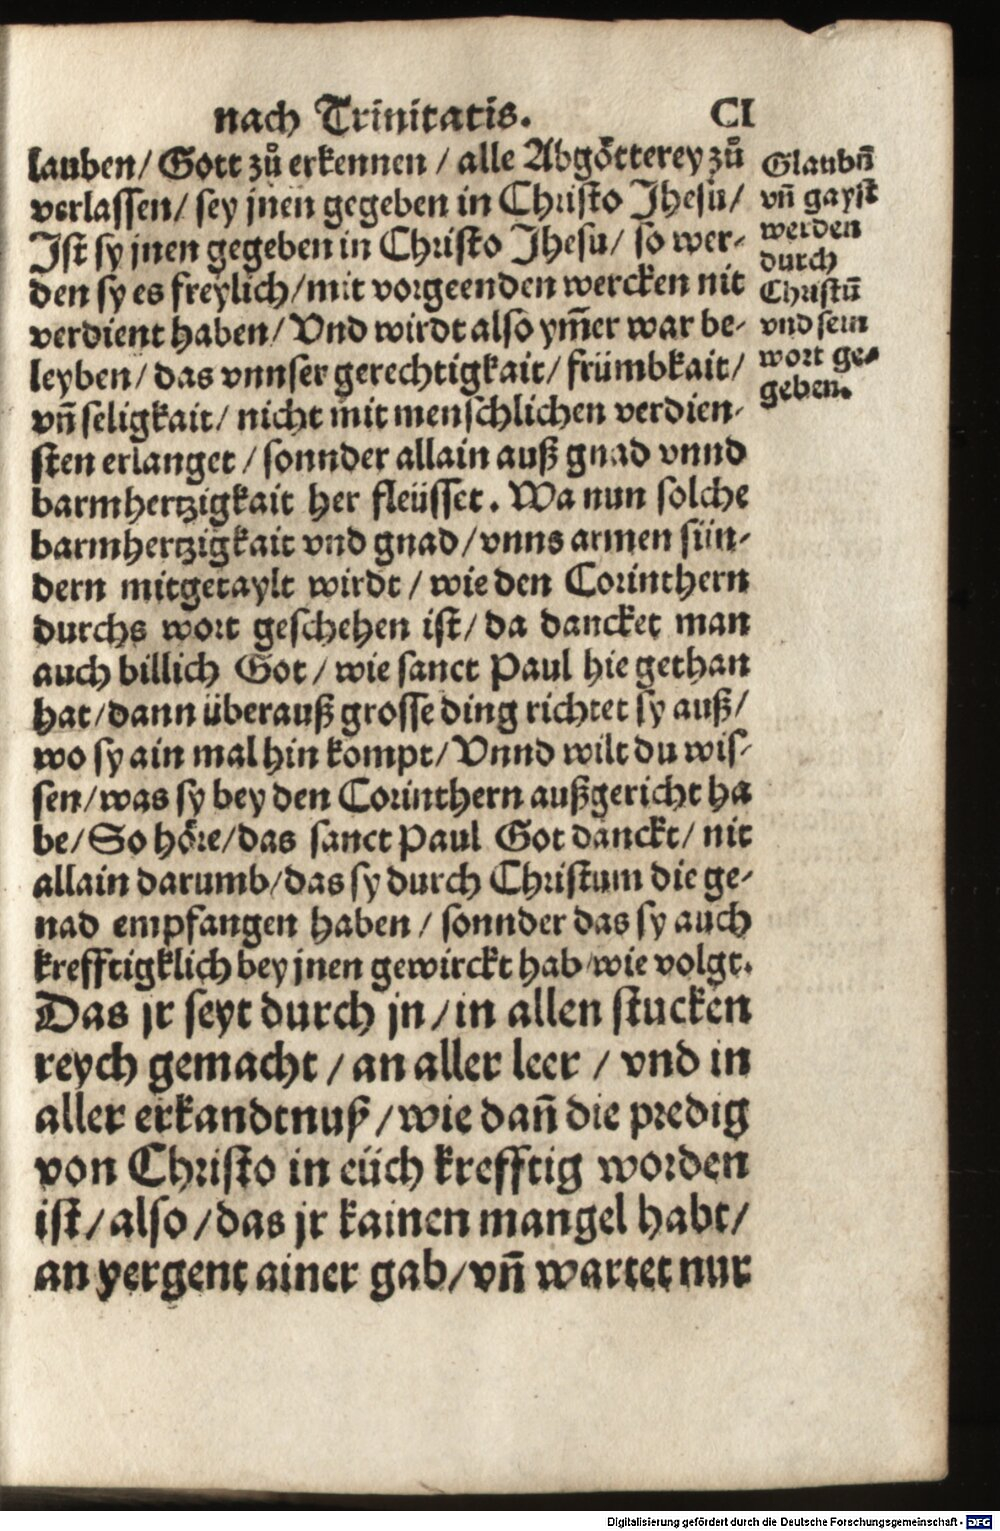 nach Trinitatis. CI
lauben/ Gott zů erkennen / alle Abgötterey zů
verlassen/ sey jnen gegeben in Christo Jhesu/
Jst sy jnen gegeben in Christo Jhesu/ so wer-
den sy es freylich/mit vorgeenden wercken nit
verdient haben/ Vnd wirdt also ym̃er war be-
leyben/ das vnnser gerechtigkait/ frümbkait/
vñ seligkait/ nicht mit menschlichen verdien-
sten erlanget / sonnder allain auß gnad vnnd
barmhertzigkait her fleüsset. Wa nun solche
barmhertzigkait vnd gnad/vnns armen sün-
dern mitgetaylt wirdt / wie den Corinthern
durchs wort geschehen ist/ da dancket man
auch billich Got / wie sanct Paul hie gethan
hat/dann überauß grosse ding richtet sy auß/
wo sy ain mal hin kompt/ Vnnd wilt du wis-
sen/was sy bey den Corinthern außgericht ha
be/ So höre/das sanct Paul Got danckt/ nit
allain darumb/das sy durch Christum die ge-
nad empfangen haben / sonnder das sy auch
krefftigklich bey jnen gewirckt hab/wie volgt.
Das jr seyt durch jn/in allen stucken
reych gemacht / an aller leer / vnd in
aller erkandtnuß/wie dañ die predig
von Christo in eüch krefftig worden
ist/also/das jr kainen mangel habt/
an yergent ainer gab/vñ wartet nur
Glaubñ
vñ gayst
werden
durch
Christũ
vnd sein
wort ge-
geben.
Digitalisierung gefördert durch die Deutsche Forschungsgemeinschaft - DFG